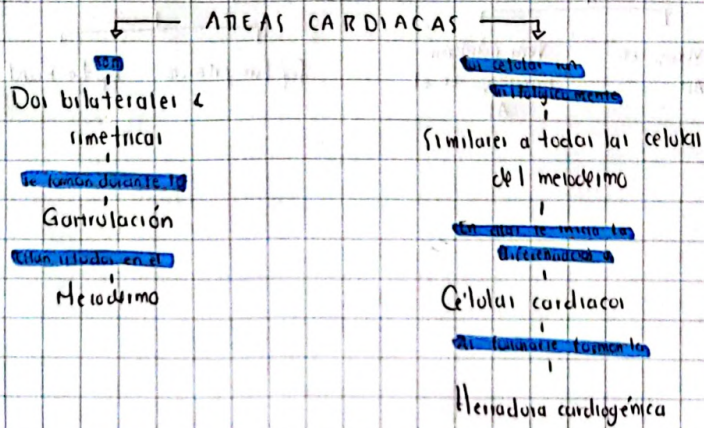 AREAS CARDIACAS
son
Dos bilaterales &
simetricas
Se forman durante la
Gastrulación
Están situadas en el
Mesodermo
Las celulas son
histologicamente
Similares a todas las celulas
del mesodermo
En ellas se inicia la
diferenciación a
Células cardiacas
Al fusionarse forman la
Herradura cardiogénica